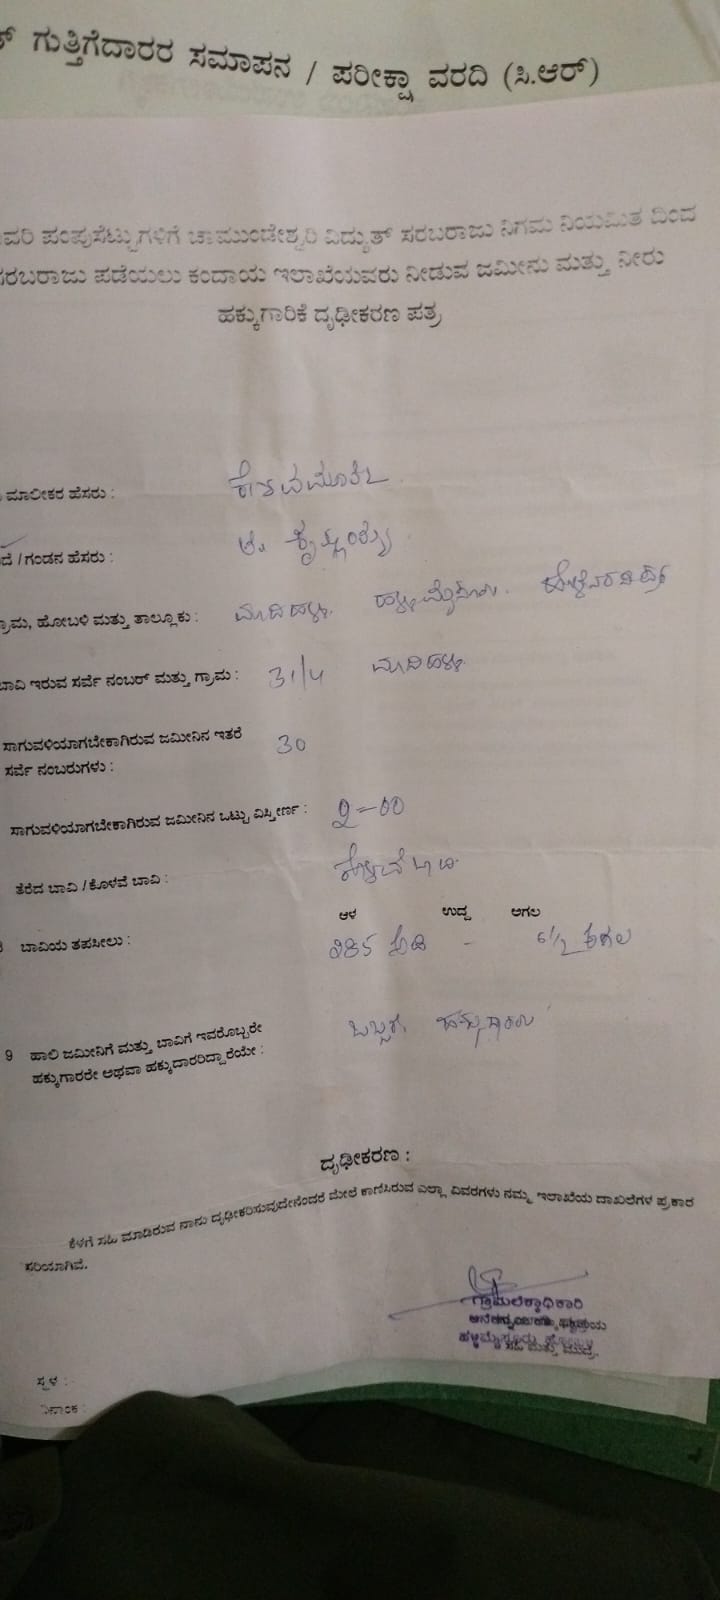 ಗುತ್ತಿಗೆದಾರರ ಸಮಾಪನ / ಪರೀಕ್ಷಾ ವರದಿ (ಸಿ.ಆರ್)
ಪಂಪುಸೆಟ್ಟುಗಳಿಗೆ ಚಾಮುಂಡೇಶ್ವರಿ ವಿದ್ಯುತ್ ಸರಬರಾಜು ನಿಗಮ ನಿಯಮಿತ ದಿಂದ
ಪಡೆಯಲು ಕಂದಾಯ ಇಲಾಖೆಯವರು ನೀಡುವ ಜಮೀನು ಮತ್ತು ನೀರು
ಹಕ್ಕುಗಾರಿಕೆ ದೃಢೀಕರಣ ಪತ್ರ
ಮಾಲೀಕರ ಹೆಸರು : ಕೇಶವಮೂರ್ತಿ
/ ಗಂಡನ ಹೆಸರು :
ಹೋಬಳಿ ಮತ್ತು ತಾಲ್ಲೂಕು : ಮಾದಿಹಳ್ಳಿ. ಹಳ್ಳಿಮೈಸೂರು.
ಬಾವಿ ಇರುವ ಸರ್ವೆ ನಂಬರ್ ಮತ್ತು ಗ್ರಾಮ : 31/4 ಮಾದಿಹಳ್ಳಿ
ಸಾಗುವಳಿಯಾಗಬೇಕಾಗಿರುವ ಜಮೀನಿನ ಇತರೆ
ಸರ್ವೆ ನಂಬರುಗಳು : 30
ಸಾಗುವಳಿಯಾಗಬೇಕಾಗಿರುವ ಜಮೀನಿನ ಒಟ್ಟು ವಿಸ್ತೀರ್ಣ : 2-00
ತೆರೆದ ಬಾವಿ / ಕೊಳವೆ ಬಾವಿ : ಕೊಳವೆ ಬಾವಿ
ಆಳ ಉದ್ದ ಅಗಲ
ಬಾವಿಯ ತಪಸೀಲು : ಅಡಿ - 6 1/2 ಅಗಲ
9 ಹಾಲಿ ಜಮೀನಿಗೆ ಮತ್ತು ಬಾವಿಗೆ ಇವರೊಬ್ಬರೇ
ಹಕ್ಕುಗಾರರೇ ಅಥವಾ ಹಕ್ಕುದಾರರಿದ್ದಾರೆಯೇ : ಒಬ್ಬರೆ ಹಕ್ಕುದಾರರು
ದೃಢೀಕರಣ :
ಕೆಳಗೆ ಸಹಿ ಮಾಡಿರುವ ನಾನು ದೃಢೀಕರಿಸುವುದೇನೆಂದರೆ ಮೇಲೆ ಕಾಣಿಸಿರುವ ಎಲ್ಲಾ ವಿವರಗಳು ನಮ್ಮ ಇಲಾಖೆಯ ದಾಖಲೆಗಳ ಪ್ರಕಾರ
ಸರಿಯಾಗಿವೆ.
ಗ್ರಾಮಲೆಕ್ಕಾಧಿಕಾರಿ
ಸಹಿ ಮತ್ತು ಮುದ್ರೆ.
ಸ್ಥಳ :
ದಿನಾಂಕ :